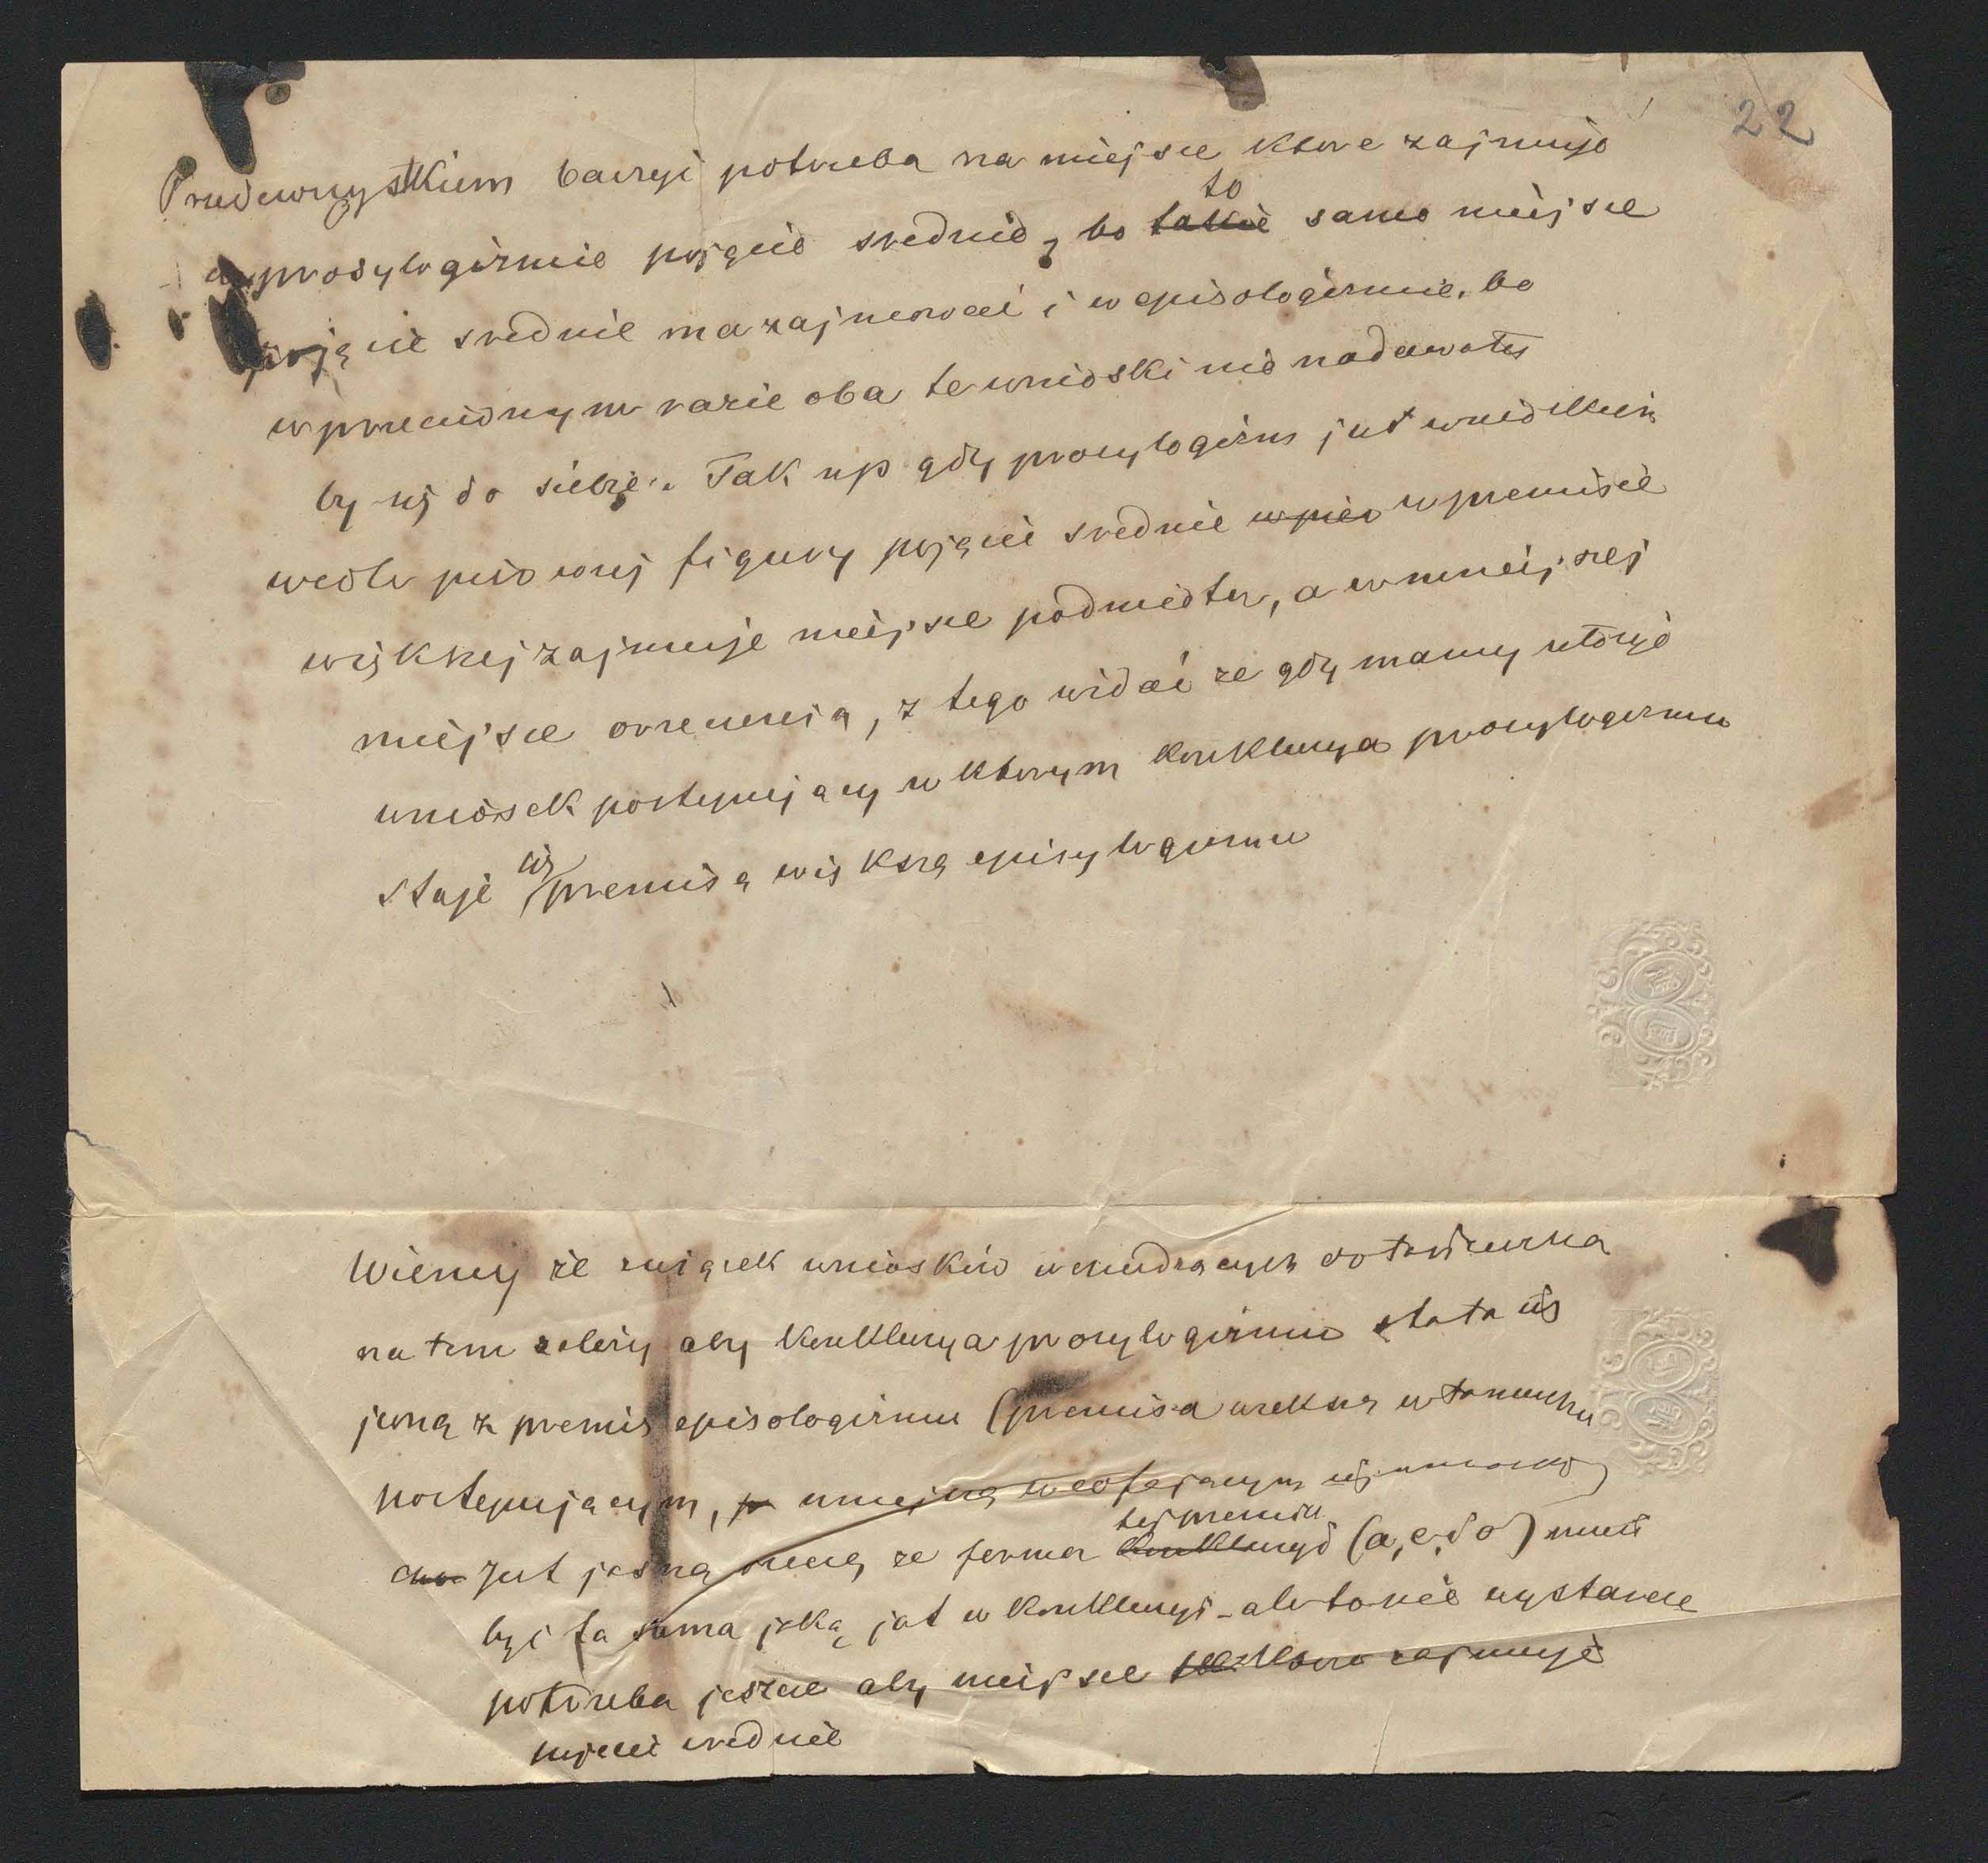 22
Przedewszystkiem baczyć potrzeba na miejsce które zajmuje
w prosylogizmie pojęcie średnie, bo takie to samo miejsce
pojęcie średnie ma zajmować i w episologizmie, bo
w przeciwnym razie oba te wnioski nie nadawały
by się do siebie. Tak np gdy prosylogizm jest wnioskiem
wedle pierwszej figury pojęcie średnie w pier w premisie
większej zajmuje miejsce podmiotu, a w mniejszej
miejsce orzeczenia, z tego widać ze gdy mamy ułożyć
wniosek postępujący w którym konkluzya prosylogizmu
staje się premisą większą episylogizmu
Wiemy że związek wniosków wchodzących do łańcucha
na tem zależy aby konkluzya prosylogizmu stała się
jedną z premis episologizmu (premisa większą w łańcuchu
postępującym, mniejszą w cofającym się wniosku)
jest jasną rzeczą ze forma konkluzyi tej premisy (a, e, i o) musi
być ta sama jaką jest w konkluzyi - ale to nie wystarcza
potrzeba jeszcze aby miejsce które zajmuje
pojęcie średnie